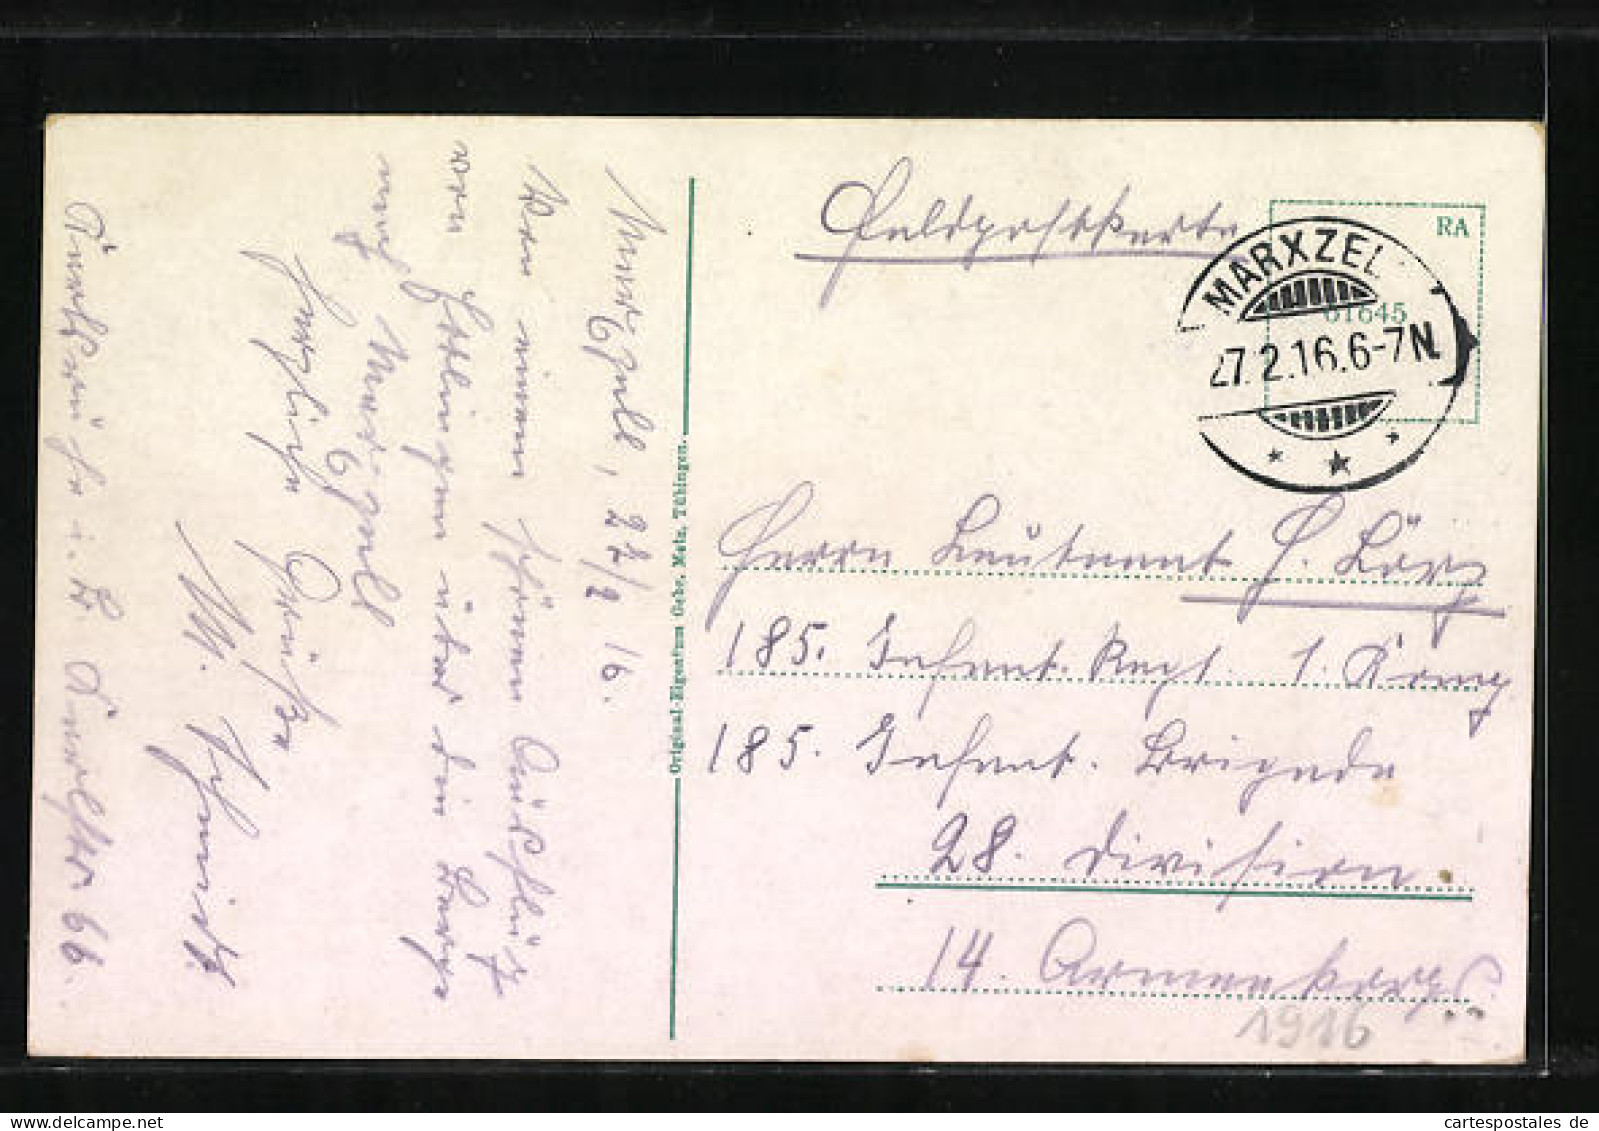 Marxzell, 27/2 16.
Von einem schönen Ausflug
von Ettlingen über die Berge
nach Marxzell
herzliche Grüße
M. Schmidt.
Karlsruhe i. B. 66.
Original-Eigentum Gebr. Metz, Tübingen.
Feldpostkarte
RA
61645
MARXZEL
27.2.16.6-7N.
Herrn Leutnant H.
185. Infant. Regt. 1. Komp
185. Infant. Brigade
28. Division.
14. Armeekorps.
1916
cartespostales.de